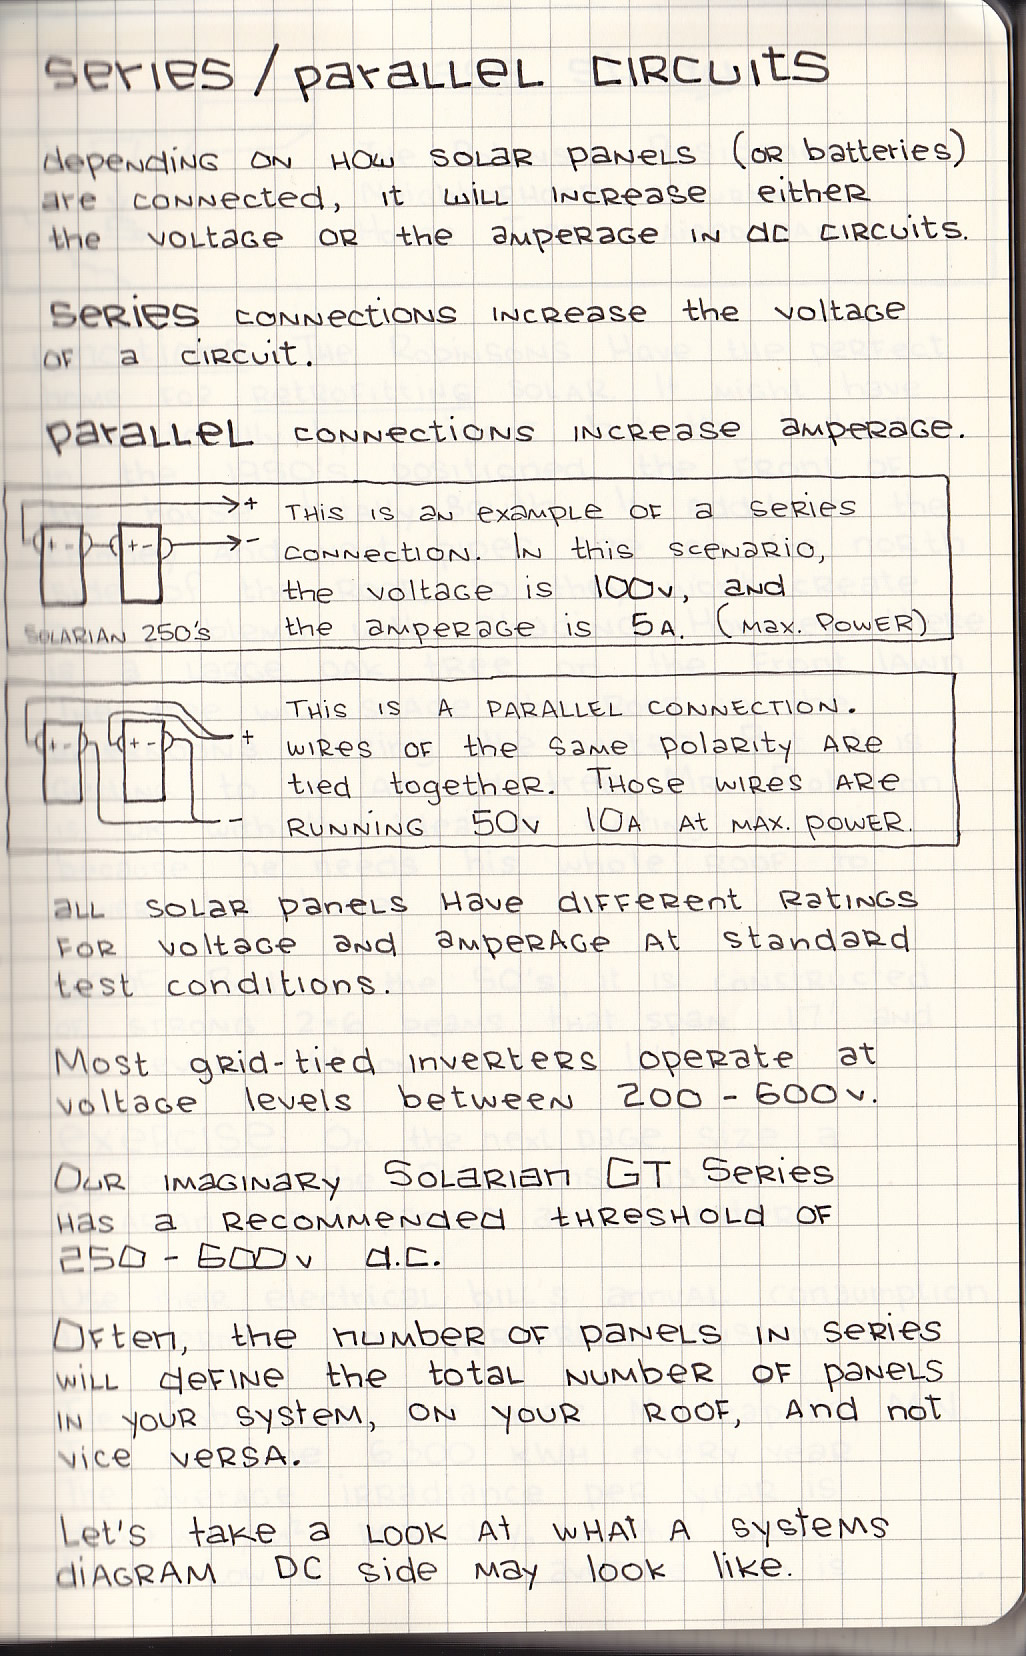 series / parallel circuits
depending on how solar panels (or batteries)
are connected, it will increase either
the voltage or the amperage in dc circuits.
series connections increase the voltage
of a circuit.
parallel connections increase amperage.
+
-
+ -
+ -
Solarian 250's
This is an example of a series
connection. In this scenario,
the voltage is 100v, and
the amperage is 5A. (max. power)
+
-
+ -
+ -
This is a parallel connection.
wires of the same polarity are
tied together. Those wires are
running 50v 10A at max. power.
all solar panels have different ratings
for voltage and amperage at standard
test conditions.
Most grid-tied inverters operate at
voltage levels between 200 - 600v.
Our imaginary Solarian GT Series
has a recommended threshold of
250 - 600v d.c.
Often, the number of panels in series
will define the total number of panels
in your system, on your roof, and not
vice versa.
Let's take a look at what a systems
diagram DC side may look like.